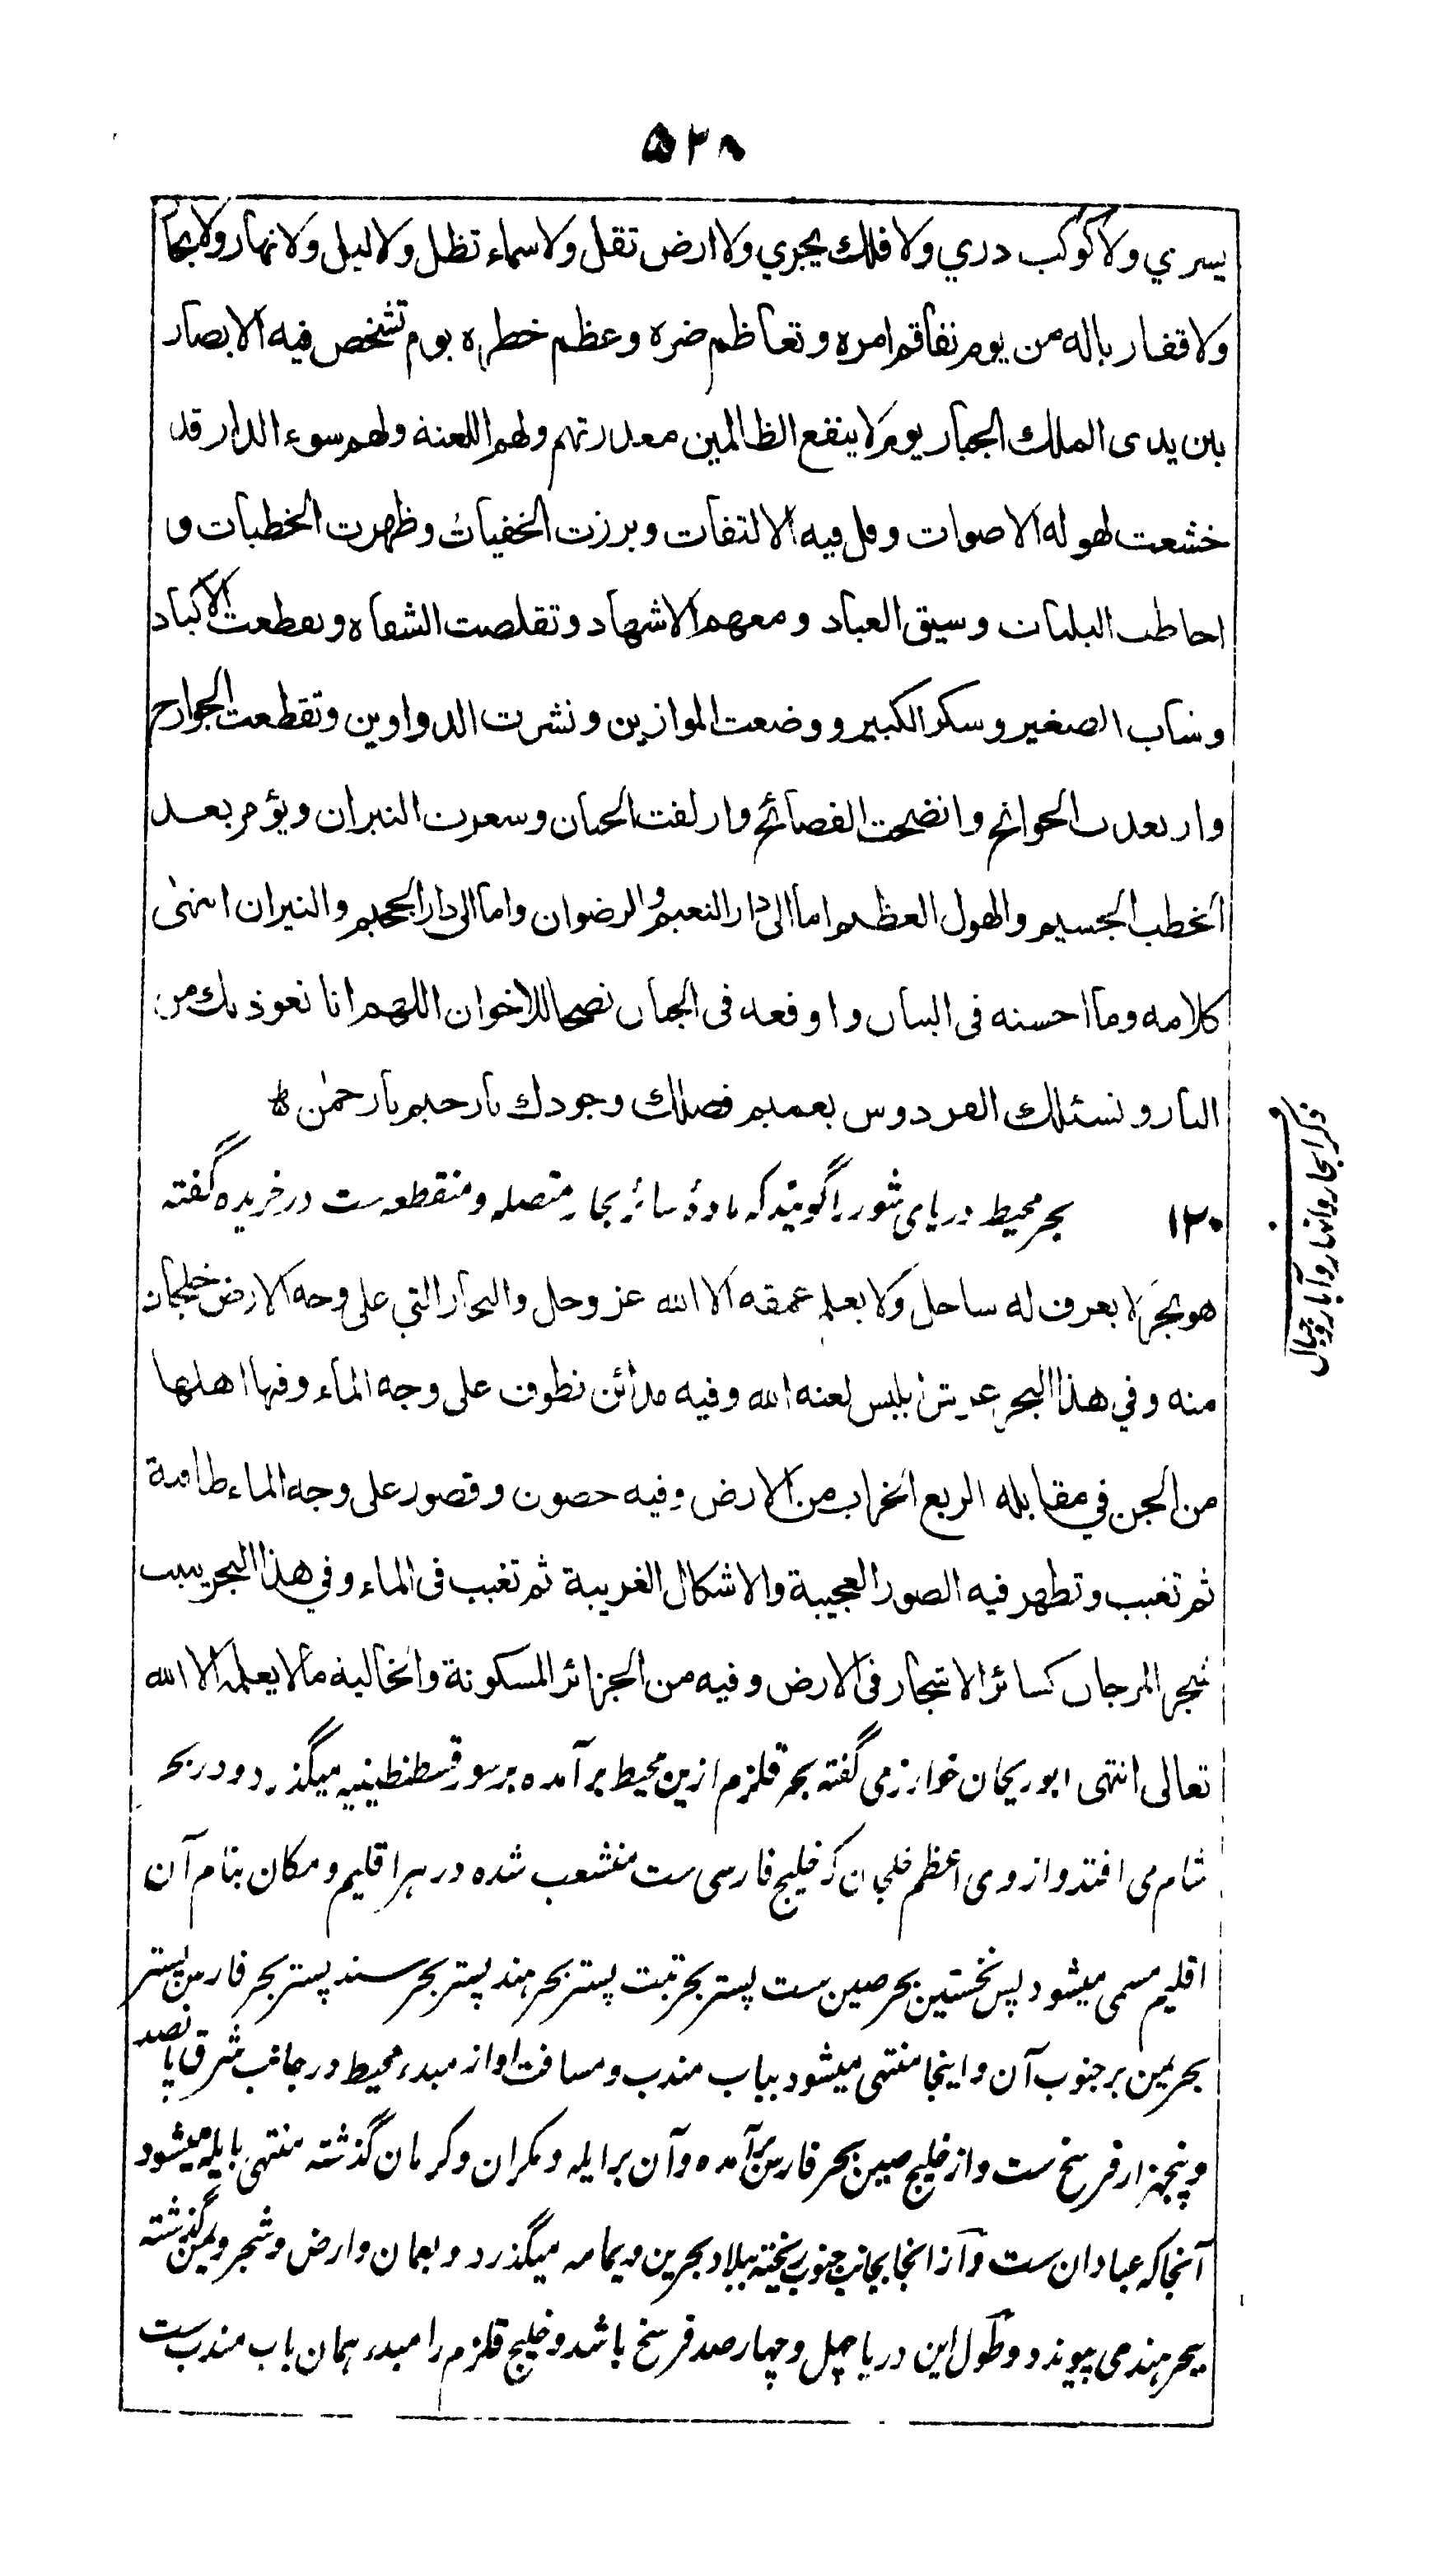 ۵۲۸
يسري ولا كوكب دري ولا فلك يجري ولا ارض تقل ولا سماء تظل ولا ليل ولا نهار ولا بحار
ولا قفار ياله من يوم تفاقم امره وتعاظم ضره وعظم خطره يوم تشخص فيه الابصار
بين يدى الملك الجبار يوم لا ينفع الظالمين معذرتهم ولهم اللعنة ولهم سوء الدار قد
خشعت لهوله الاصوات وقل فيه الالتفات وبرزت الخفيات وظهرت الخطيات و
احاطت البليات وسيق العباد ومعهم الاشهاد وتقلصت الشفاه وتقطعت الاكباد
وشاب الصغير وسكر الكبير ووضعت الموازين ونشرت الدواوين وتقطعت الجوارح
وارتعدت الجوانح وانضحت الفضائح وازلفت الجنان وسعرت النيران ويؤمر بعد
الخطب الجسيم والهول العظيم اما الى دار النعيم والرضوان واما الى دار الجحيم والنيران انتهىٰ
كلامه وما احسنه فى البيان واوقعه فى الجنان نصحا للاخوان اللهم انا نعوذ بك من
النار ونسئلك الفردوس بعميم فضلك وجودك يا رحيم يا رحمٰن
۱۲۰ بحر محیط دریای شور را گویند که مادۂ سائر بحار متصله و منقطعه ست در خریده گفته
هو بحر لا يعرف له ساحل ولا يعلم عمقه الا الله عز وجل والبحار التي على وجه الارض خليجان
منه وفي هذا البحر عرش ابليس لعنه الله وفيه مدائن تطوف على وجه الماء وفيها اهلها
من الجن في مقابلة الربع الخراب من الارض وفيه حصون وقصور على وجه الماء طافية
ثم تغيب وتظهر فيه الصور العجيبة والاشكال الغريبة ثم تغيب فى الماء وفي هذا البحر ينبت
شجر المرجان كسائر الاشجار فى الارض وفيه من الجزائر المسكونة والخالية ما لا يعلمه الا الله
تعالى انتهى ابو ریحان خوارزمی گفته بحر قلزم ازین محیط برآمده بر سور قسطنطینیه میگذرد و در بحر
شام می افتد و از وی اعظم خلجان که خلیج فارسی ست منشعب شده در هر اقلیم و مکان بنام آن
اقلیم مسمی میشود پس نخستین بحر صین ست پستر بحر تبت پستر بحر هند پستر بحر سند پستر بحر فارس پستر
بحر یمن بر جنوب آن و اینجا منتهی میشود بباب مندب و مسافت او از مبدء محیط در جانب شرق پانصد
و پنجهزار فرسخ ست و از خلیج صین بحر فارس برآمده و آن بر ایله و مکران و کرمان گذشته منتهی بایله میشود
آنجا که عبادان ست و از انجا بجانب جنوب ریخته ببلاد بحرین و یمامه میگذرد و بعمان و ارض و شحر و یمن گذشته
ببحر هند می پیوندد و طول این دریا چهل و چهارصد فرسخ باشد و خلیج قلزم را مبدء همان باب مندب ست
ذکر ابحار و انهار و آبار و جبال